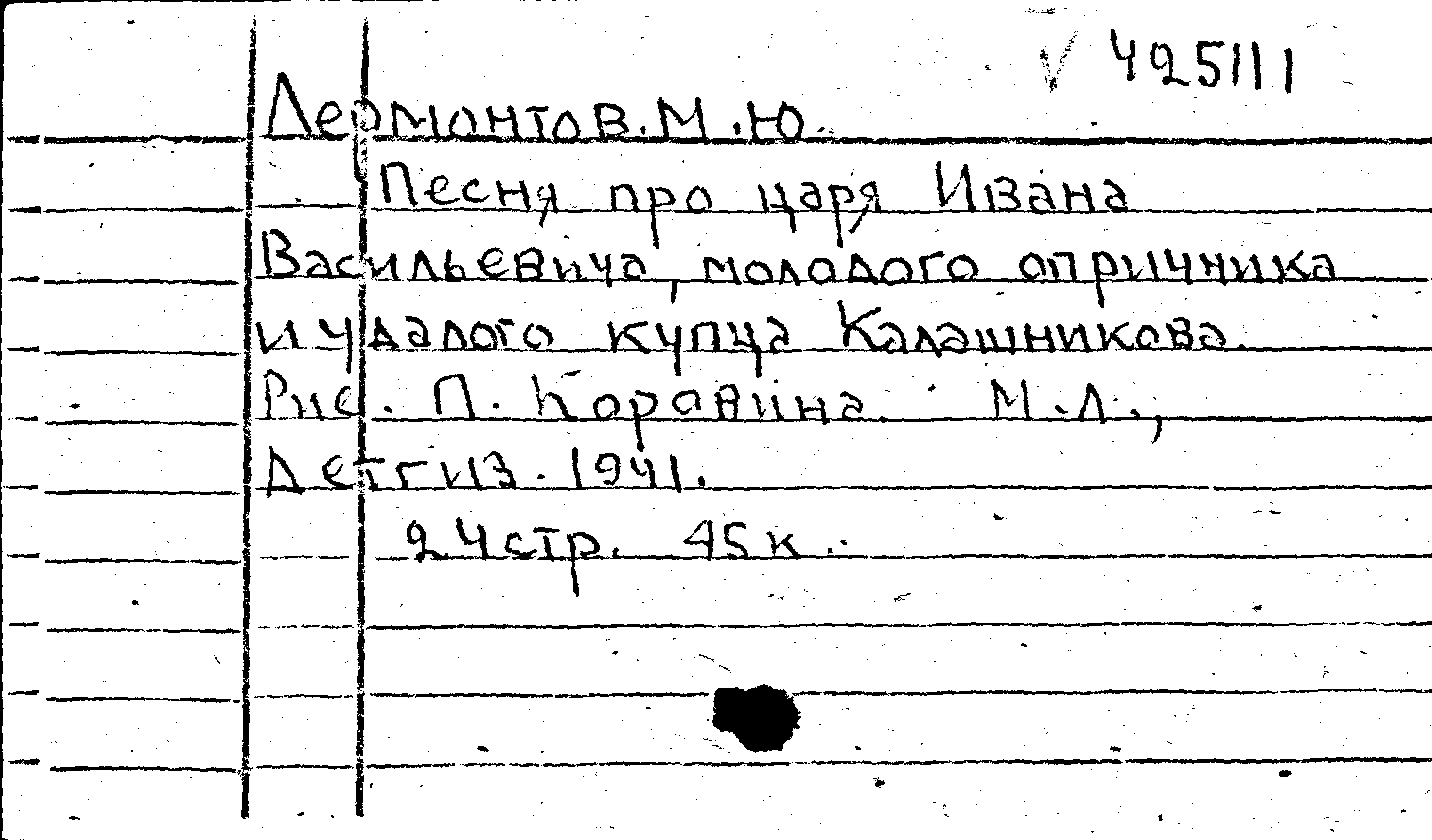 √ 425111
Лермонтов. М. Ю.
Песня про царя Ивана
Васильевича, молодого опричника
и удалого купца Калашникова.
Рис. П. Коравина. М.Л.,
Детгиз. 1941.
24 стр. 45 к.